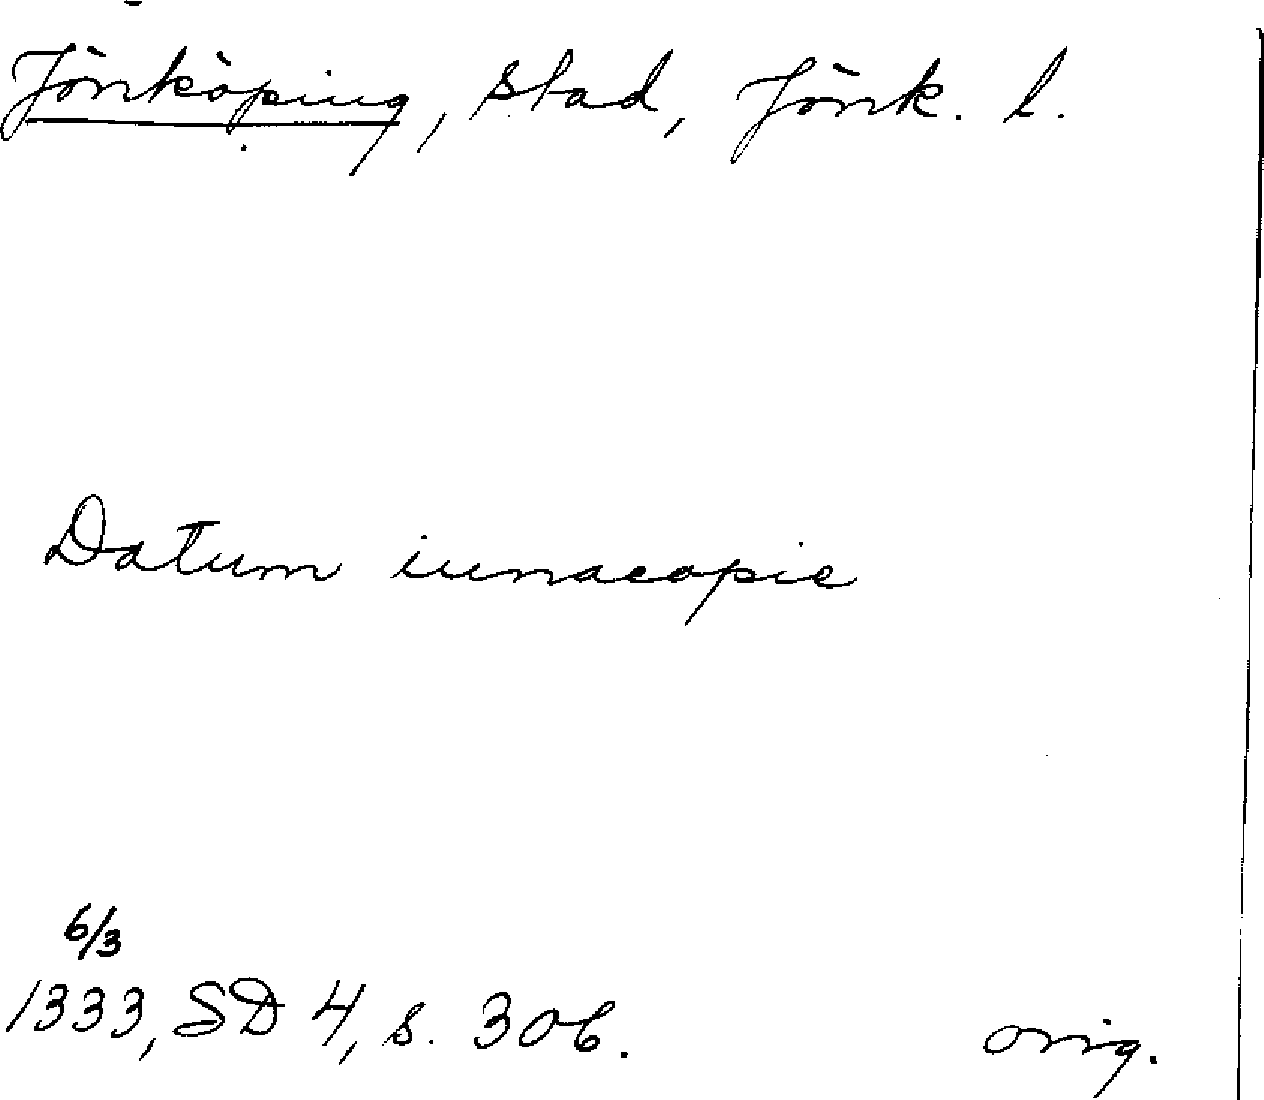 Jönköping, stad, Jönk. l.
Datum iunacopie
6/3
1333, SD 4, s. 306.
orig.